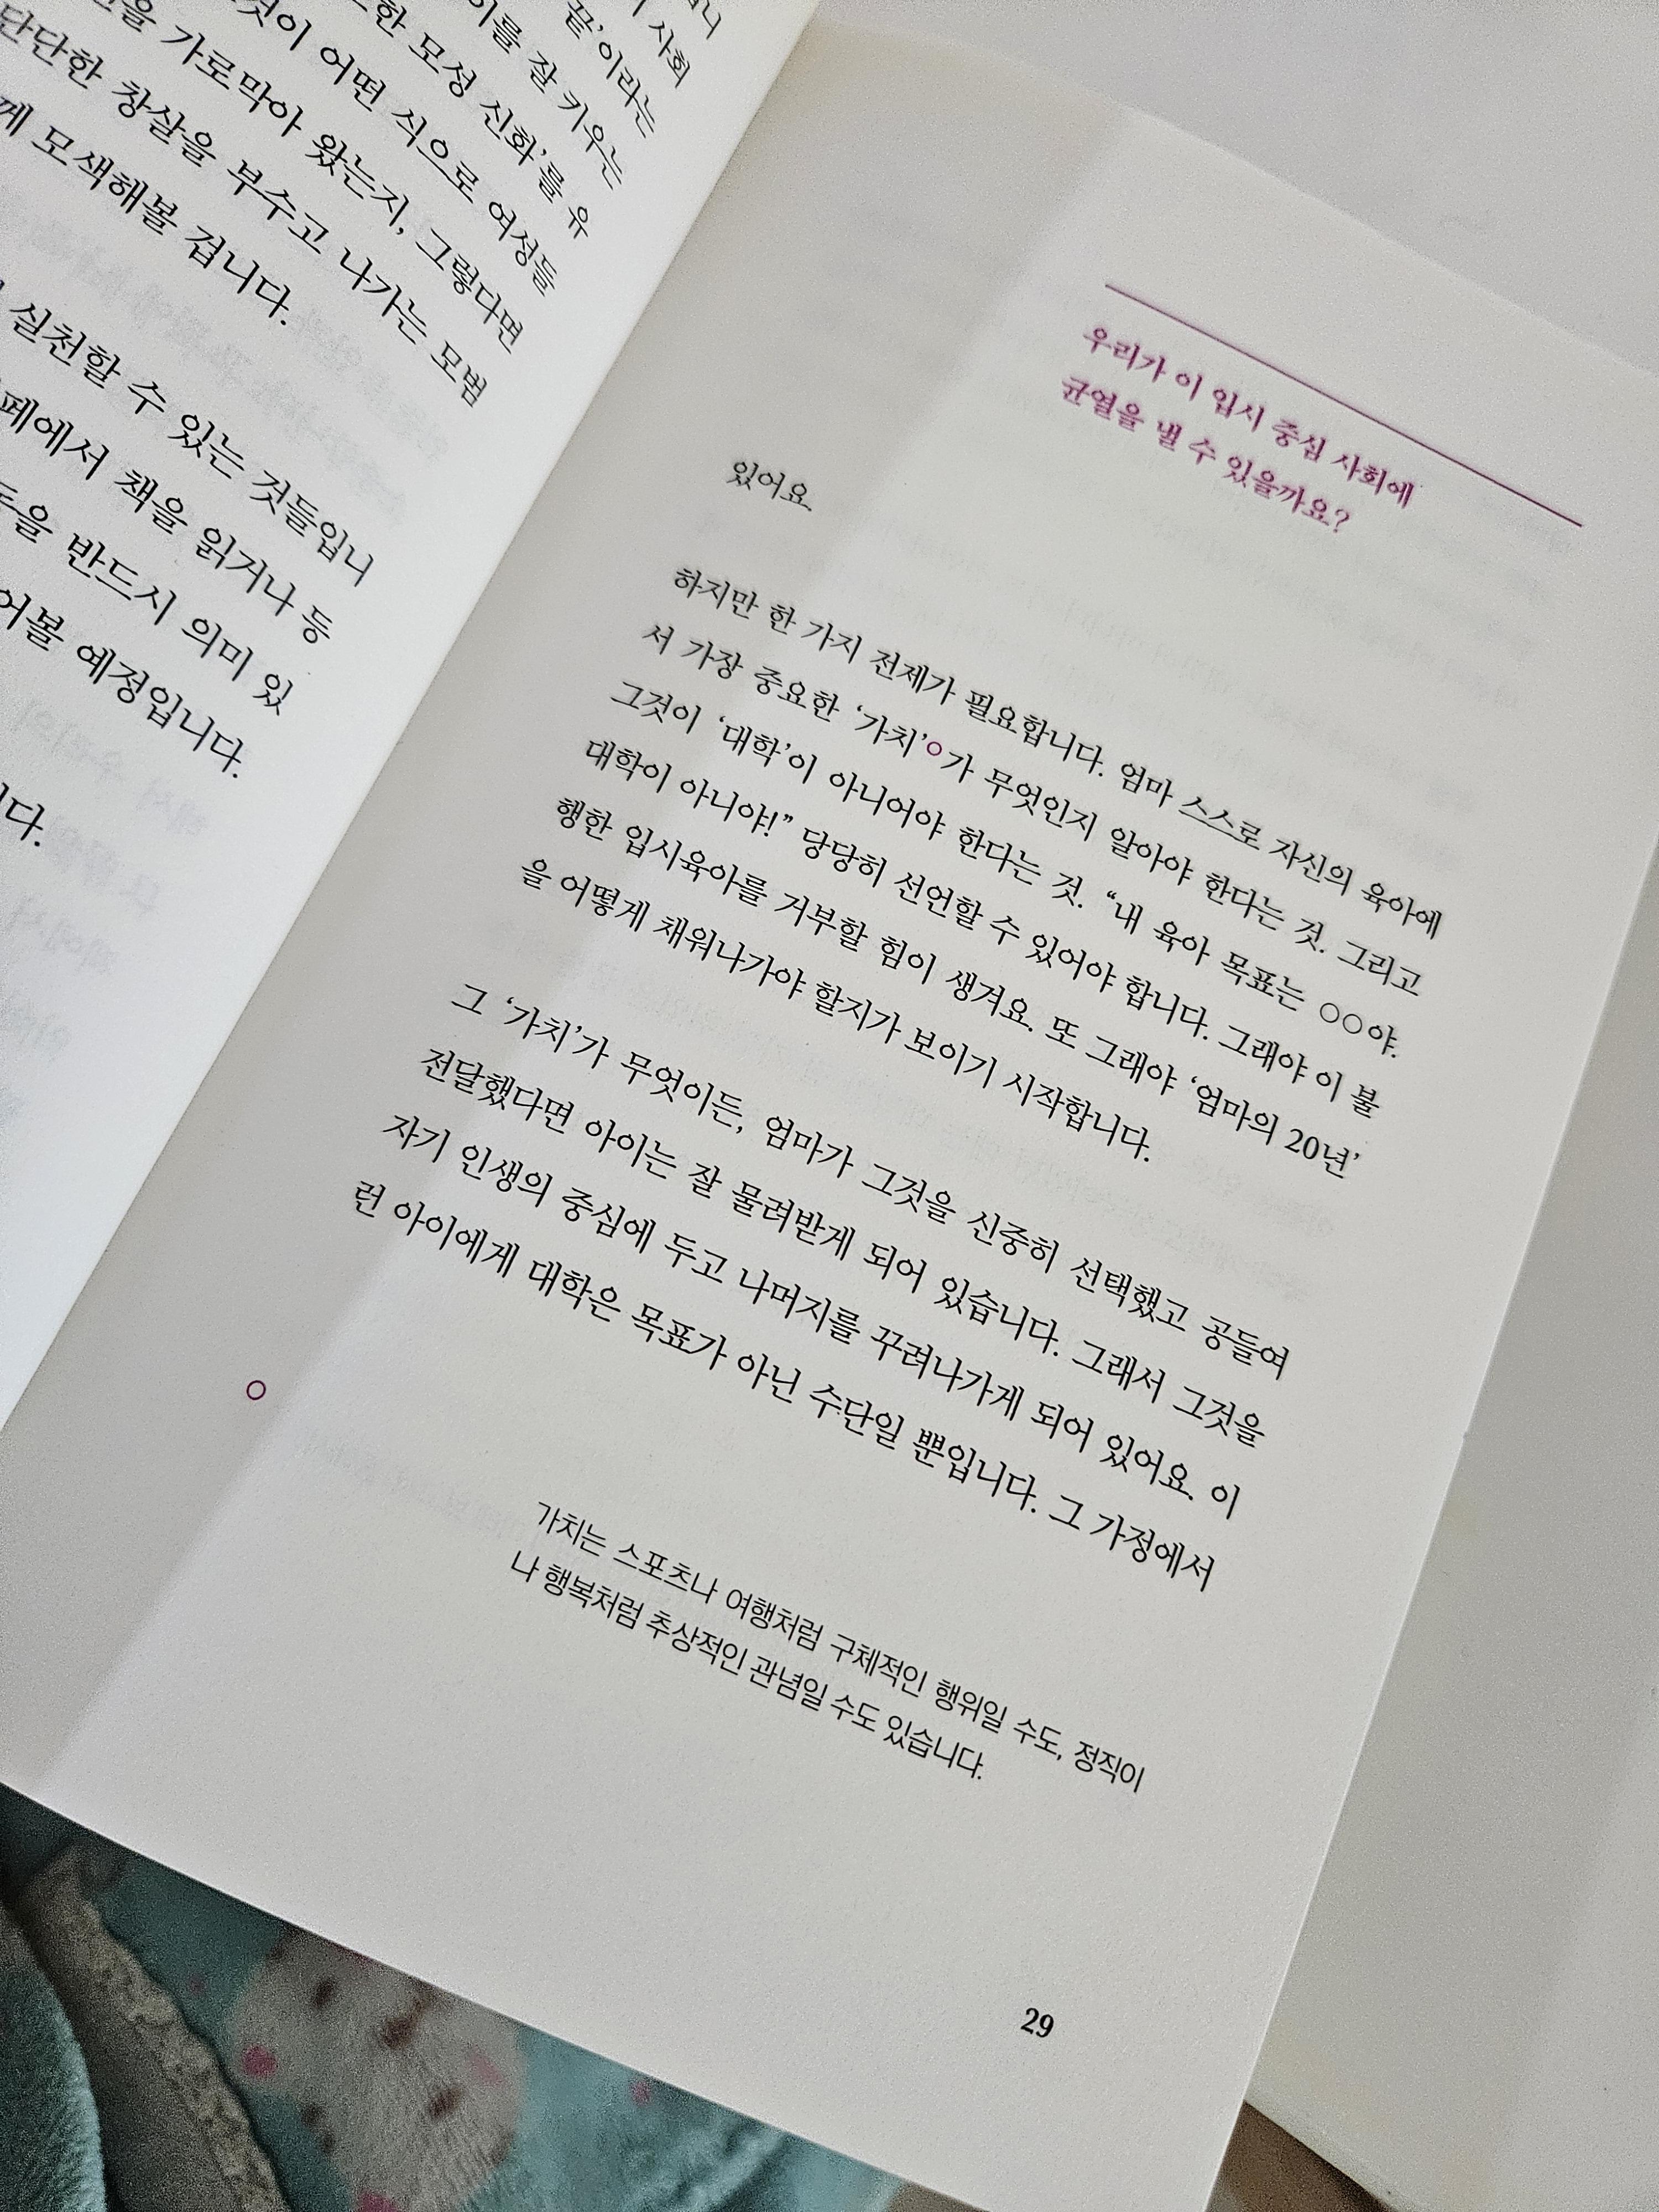 사회
끝’이라는
이를 잘 키우는
한 모성 신화’를 유
것이 어떤 식으로 여성들
을 가로막아 왔는지, 그렇다면
단단한 창살을 부수고 나가는 모범
께 모색해볼 겁니다.
실천할 수 있는 것들입니
페에서 책을 읽거나 등
을 반드시 의미 있
어볼 예정입니다.
다.
우리가 이 입시 중심 사회에
균열을 낼 수 있을까요?
있어요.
하지만 한 가지 전제가 필요합니다. 엄마 스스로 자신의 육아에
서 가장 중요한 ‘가치’○가 무엇인지 알아야 한다는 것. 그리고
그것이 ‘대학’이 아니어야 한다는 것. “내 육아 목표는 ○○야.
대학이 아니야!” 당당히 선언할 수 있어야 합니다. 그래야 이 불
행한 입시육아를 거부할 힘이 생겨요. 또 그래야 ‘엄마의 20년’
을 어떻게 채워나가야 할지가 보이기 시작합니다.
그 ‘가치’가 무엇이든, 엄마가 그것을 신중히 선택했고 공들여
전달했다면 아이는 잘 물려받게 되어 있습니다. 그래서 그것을
자기 인생의 중심에 두고 나머지를 꾸려나가게 되어 있어요. 이
런 아이에게 대학은 목표가 아닌 수단일 뿐입니다. 그 가정에서
○
가치는 스포츠나 여행처럼 구체적인 행위일 수도, 정직이
나 행복처럼 추상적인 관념일 수도 있습니다.
29